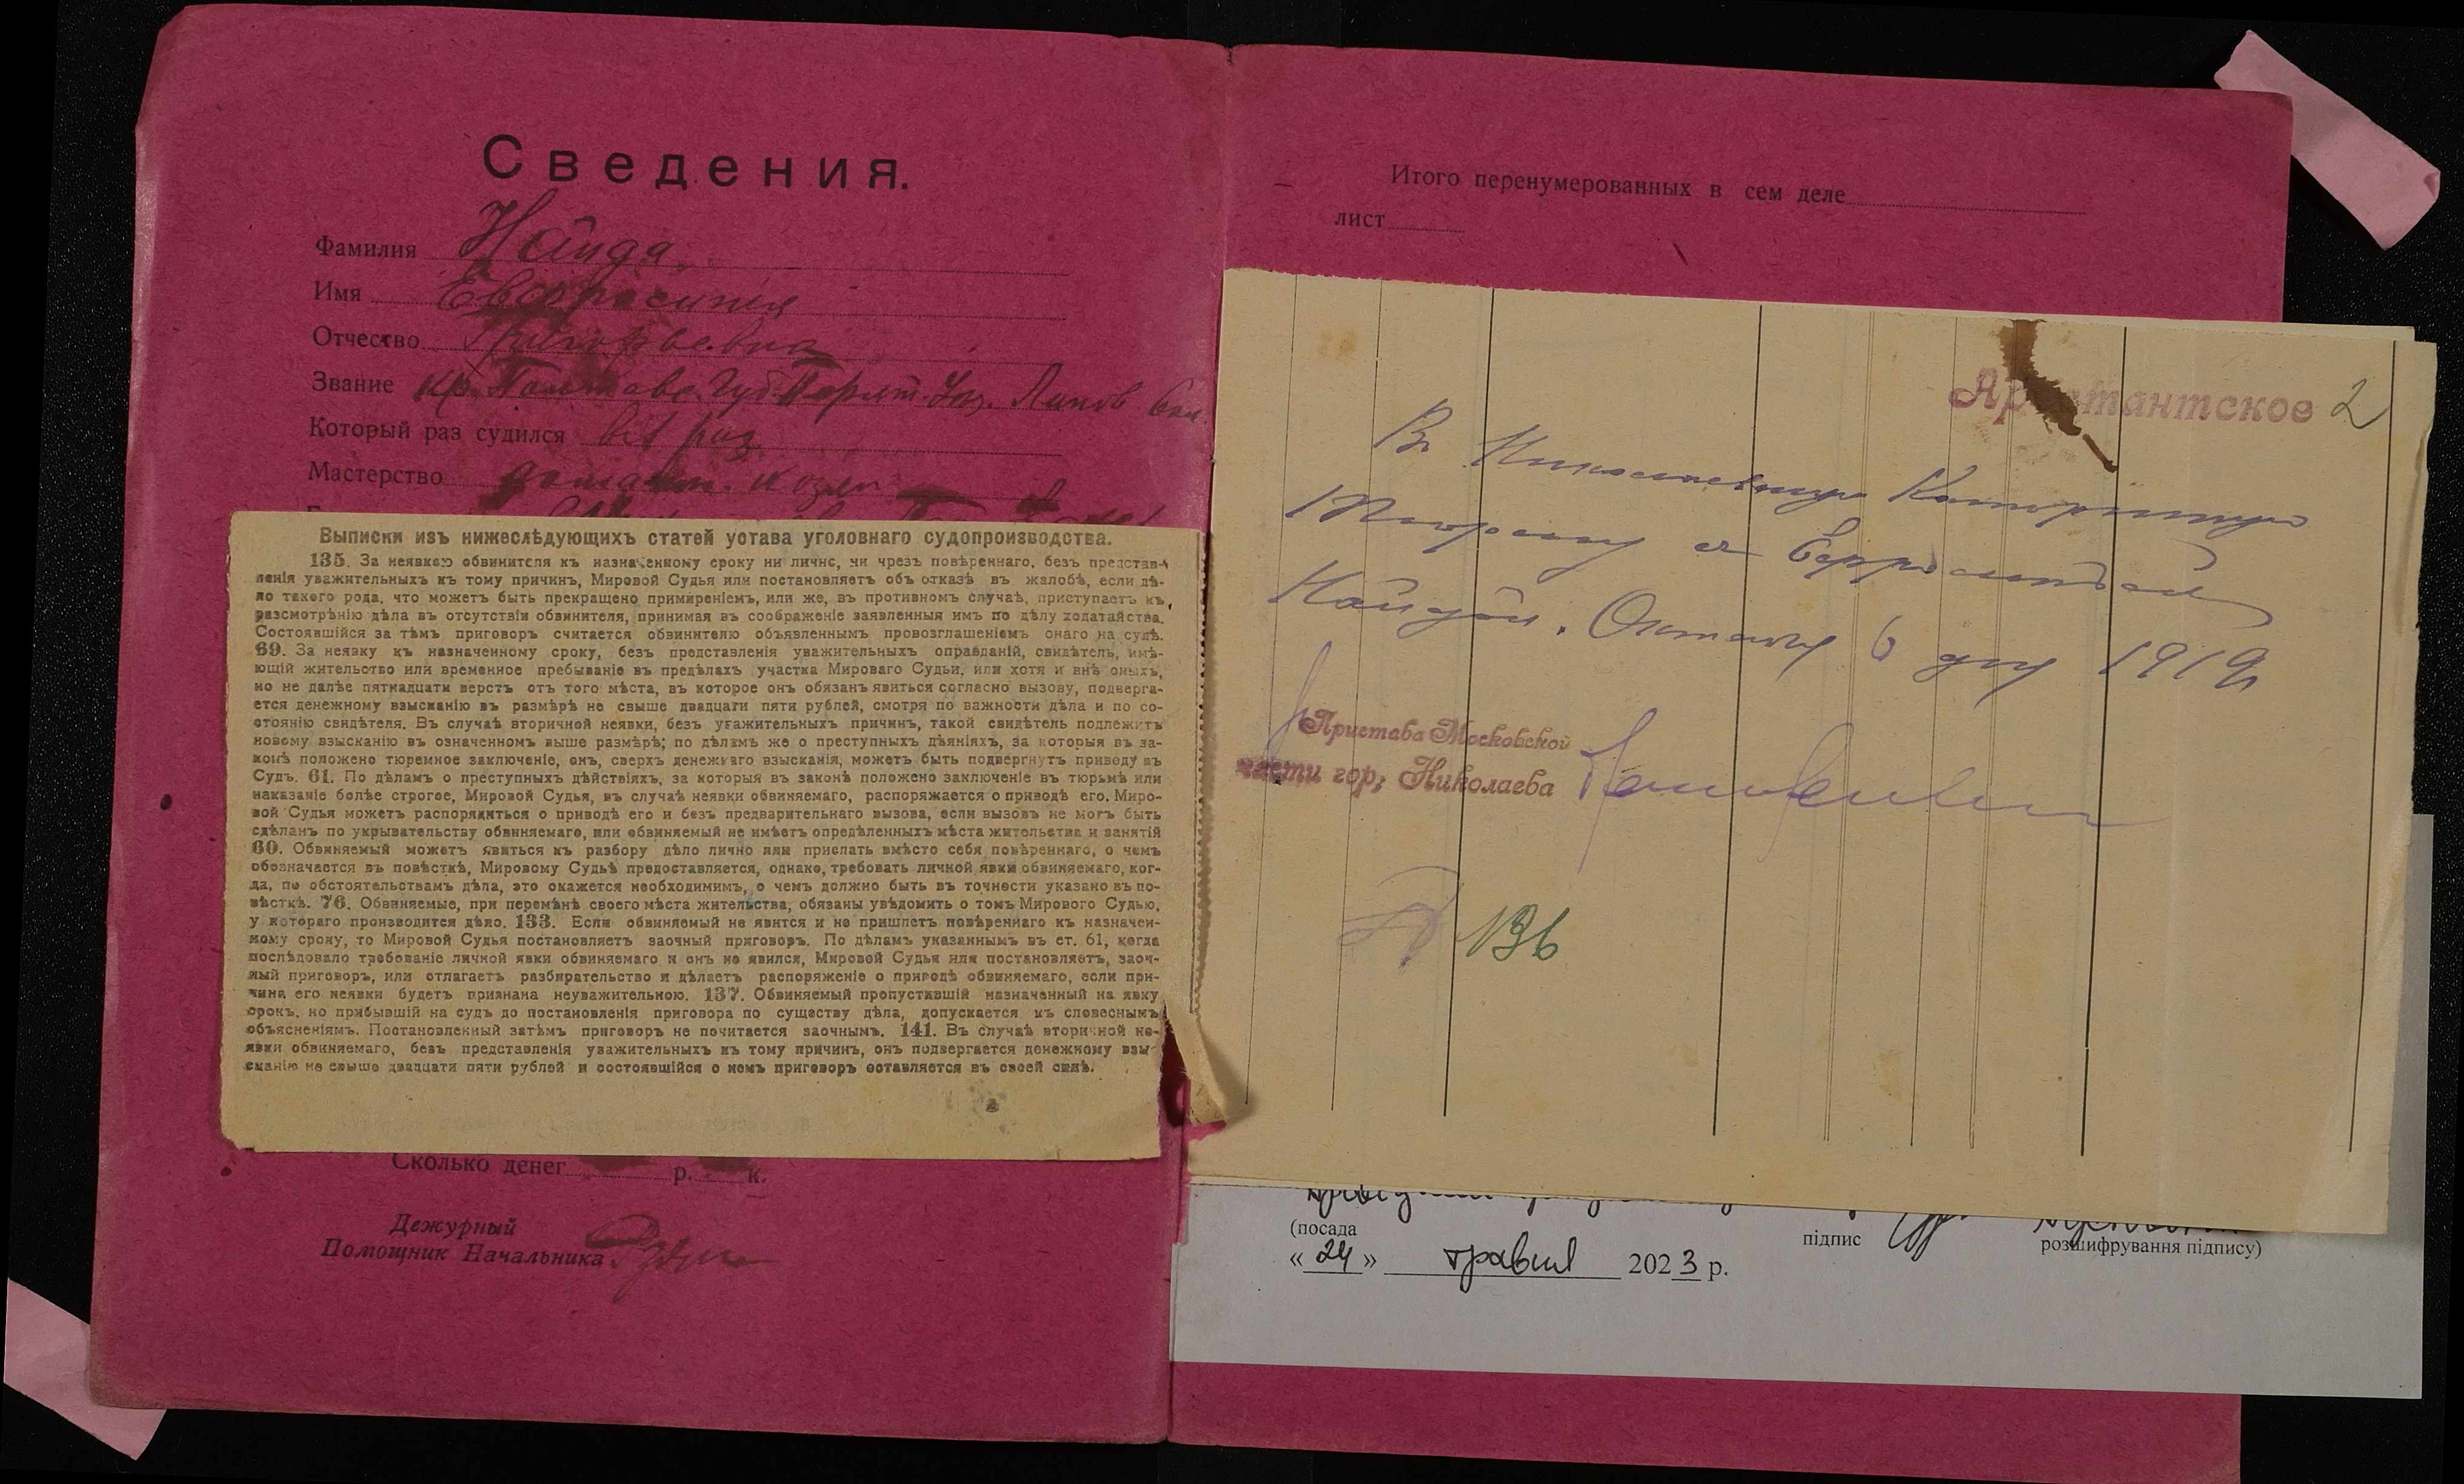 Сведения.
Фамилия Найда
Имя Евфросиния
Отчество Григорьевна
Звание кр. Полтавс. Губ. Уез.
Который раз судился раз
Мастерство
Выписки изъ нижеслѣдующихъ статей устава уголовнаго судопроизводства.
135. За неявкою обвинителя къ назначенному сроку ни лично, ни чрезъ повѣреннаго, безъ представ-
ленія уважительныхъ къ тому причинъ, Мировой Судья или постановляетъ объ отказѣ въ жалобѣ, если дѣ-
ло такого рода, что можетъ быть прекращено примиреніемъ, или же, въ противномъ случаѣ, приступаетъ къ
разсмотрѣнію дѣла въ отсутствіи обвинителя, принимая въ соображеніе заявленныя имъ по дѣлу ходатайства.
Состоявшійся за тѣмъ приговоръ считается обвинителю объявленнымъ провозглашеніемъ онаго на судѣ.
69. За неявку къ назначенному сроку, безъ представленія уважительныхъ оправданій, свидѣтель, имѣ-
ющій жительство или временное пребываніе въ предѣлахъ участка Мироваго Судьи, или хотя и внѣ оныхъ,
но не далѣе пятнадцати верстъ отъ того мѣста, въ которое онъ обязанъ явиться согласно вызову, подверга-
ется денежному взысканію въ размѣрѣ не свыше двадцати пяти рублей, смотря по важности дѣла и по со-
стоянію свидѣтеля. Въ случаѣ вторичной неявки, безъ уважительныхъ причинъ, такой свидѣтель подлежитъ
новому взысканію въ означенномъ выше размѣрѣ; по дѣламъ же о преступныхъ дѣяніяхъ, за которыя въ за-
конѣ положено тюремное заключеніе, онъ, сверхъ денежнаго взысканія, можетъ быть подвергнутъ приводу въ
Судъ. 61. По дѣламъ о преступныхъ дѣйствіяхъ, за которыя въ законѣ положено заключеніе въ тюрьмѣ или
наказаніе болѣе строгое, Мировой Судья, въ случаѣ неявки обвиняемаго, распоряжается о приводѣ его. Миро-
вой Судья можетъ распорядиться о приводѣ его и безъ предварительнаго вызова, если вызовъ не могъ быть
сдѣланъ по укрывательству обвиняемаго, или обвиняемый не имѣетъ опредѣленныхъ мѣста жительства и занятій
60. Обвиняемый можетъ явиться къ разбору дѣло лично или прислать вмѣсто себя повѣреннаго, о чемъ
обозначается въ повѣсткѣ, Мировому Судьѣ предоставляется, однако, требовать личной явки обвиняемаго, ког-
да, по обстоятельствамъ дѣла, это окажется необходимимъ, о чемъ должно быть въ точности указано въ по-
вѣсткѣ. 76. Обвиняемые, при перемѣнѣ своего мѣста жительства, обязаны увѣдомить о томъ Мирового Судью,
у котораго производится дѣло. 133. Если обвиняемый не явится и не пришлетъ повѣреннаго къ назначен-
ному сроку, то Мировой Судья постановляетъ заочный приговоръ. По дѣламъ указаннымъ въ ст. 61, когда
послѣдовало требованіе личной явки обвиняемаго и онъ не явился, Мировой Судья или постановляетъ, заоч-
ный приговоръ, или отлагаетъ разбирательство и дѣлаетъ распоряженіе о приводѣ обвиняемаго, если при-
чина его неявки будетъ признана неуважительною. 137. Обвиняемый пропустившій назначенный на явку
срокъ, но прибывшій на судъ до постановленія приговора по существу дѣла, допускается къ словеснымъ
объясненіямъ. Постановленный затѣмъ приговоръ не почитается заочнымъ. 141. Въ случаѣ вторичной не-
явки обвиняемаго, безъ представленія уважительныхъ къ тому причинъ, онъ подвергается денежному взы-
сканію не свыше двадцати пяти рублей и состоявшійся о немъ приговоръ оставляется въ своей силѣ.
Сколько денег р. к.
Дежурный
Помощник Начальника
Итого перенумерованных в сем деле
лист
Арестантское 2
Въ Николаевскую Каторжную
Тюрьму съ
Найдой. Октября 6 дня 1919 г.
Пристава Московской
части гор. Николаева
136
(посада
підпис
розшифрування підпису)
« 24 » травня 2023 р.